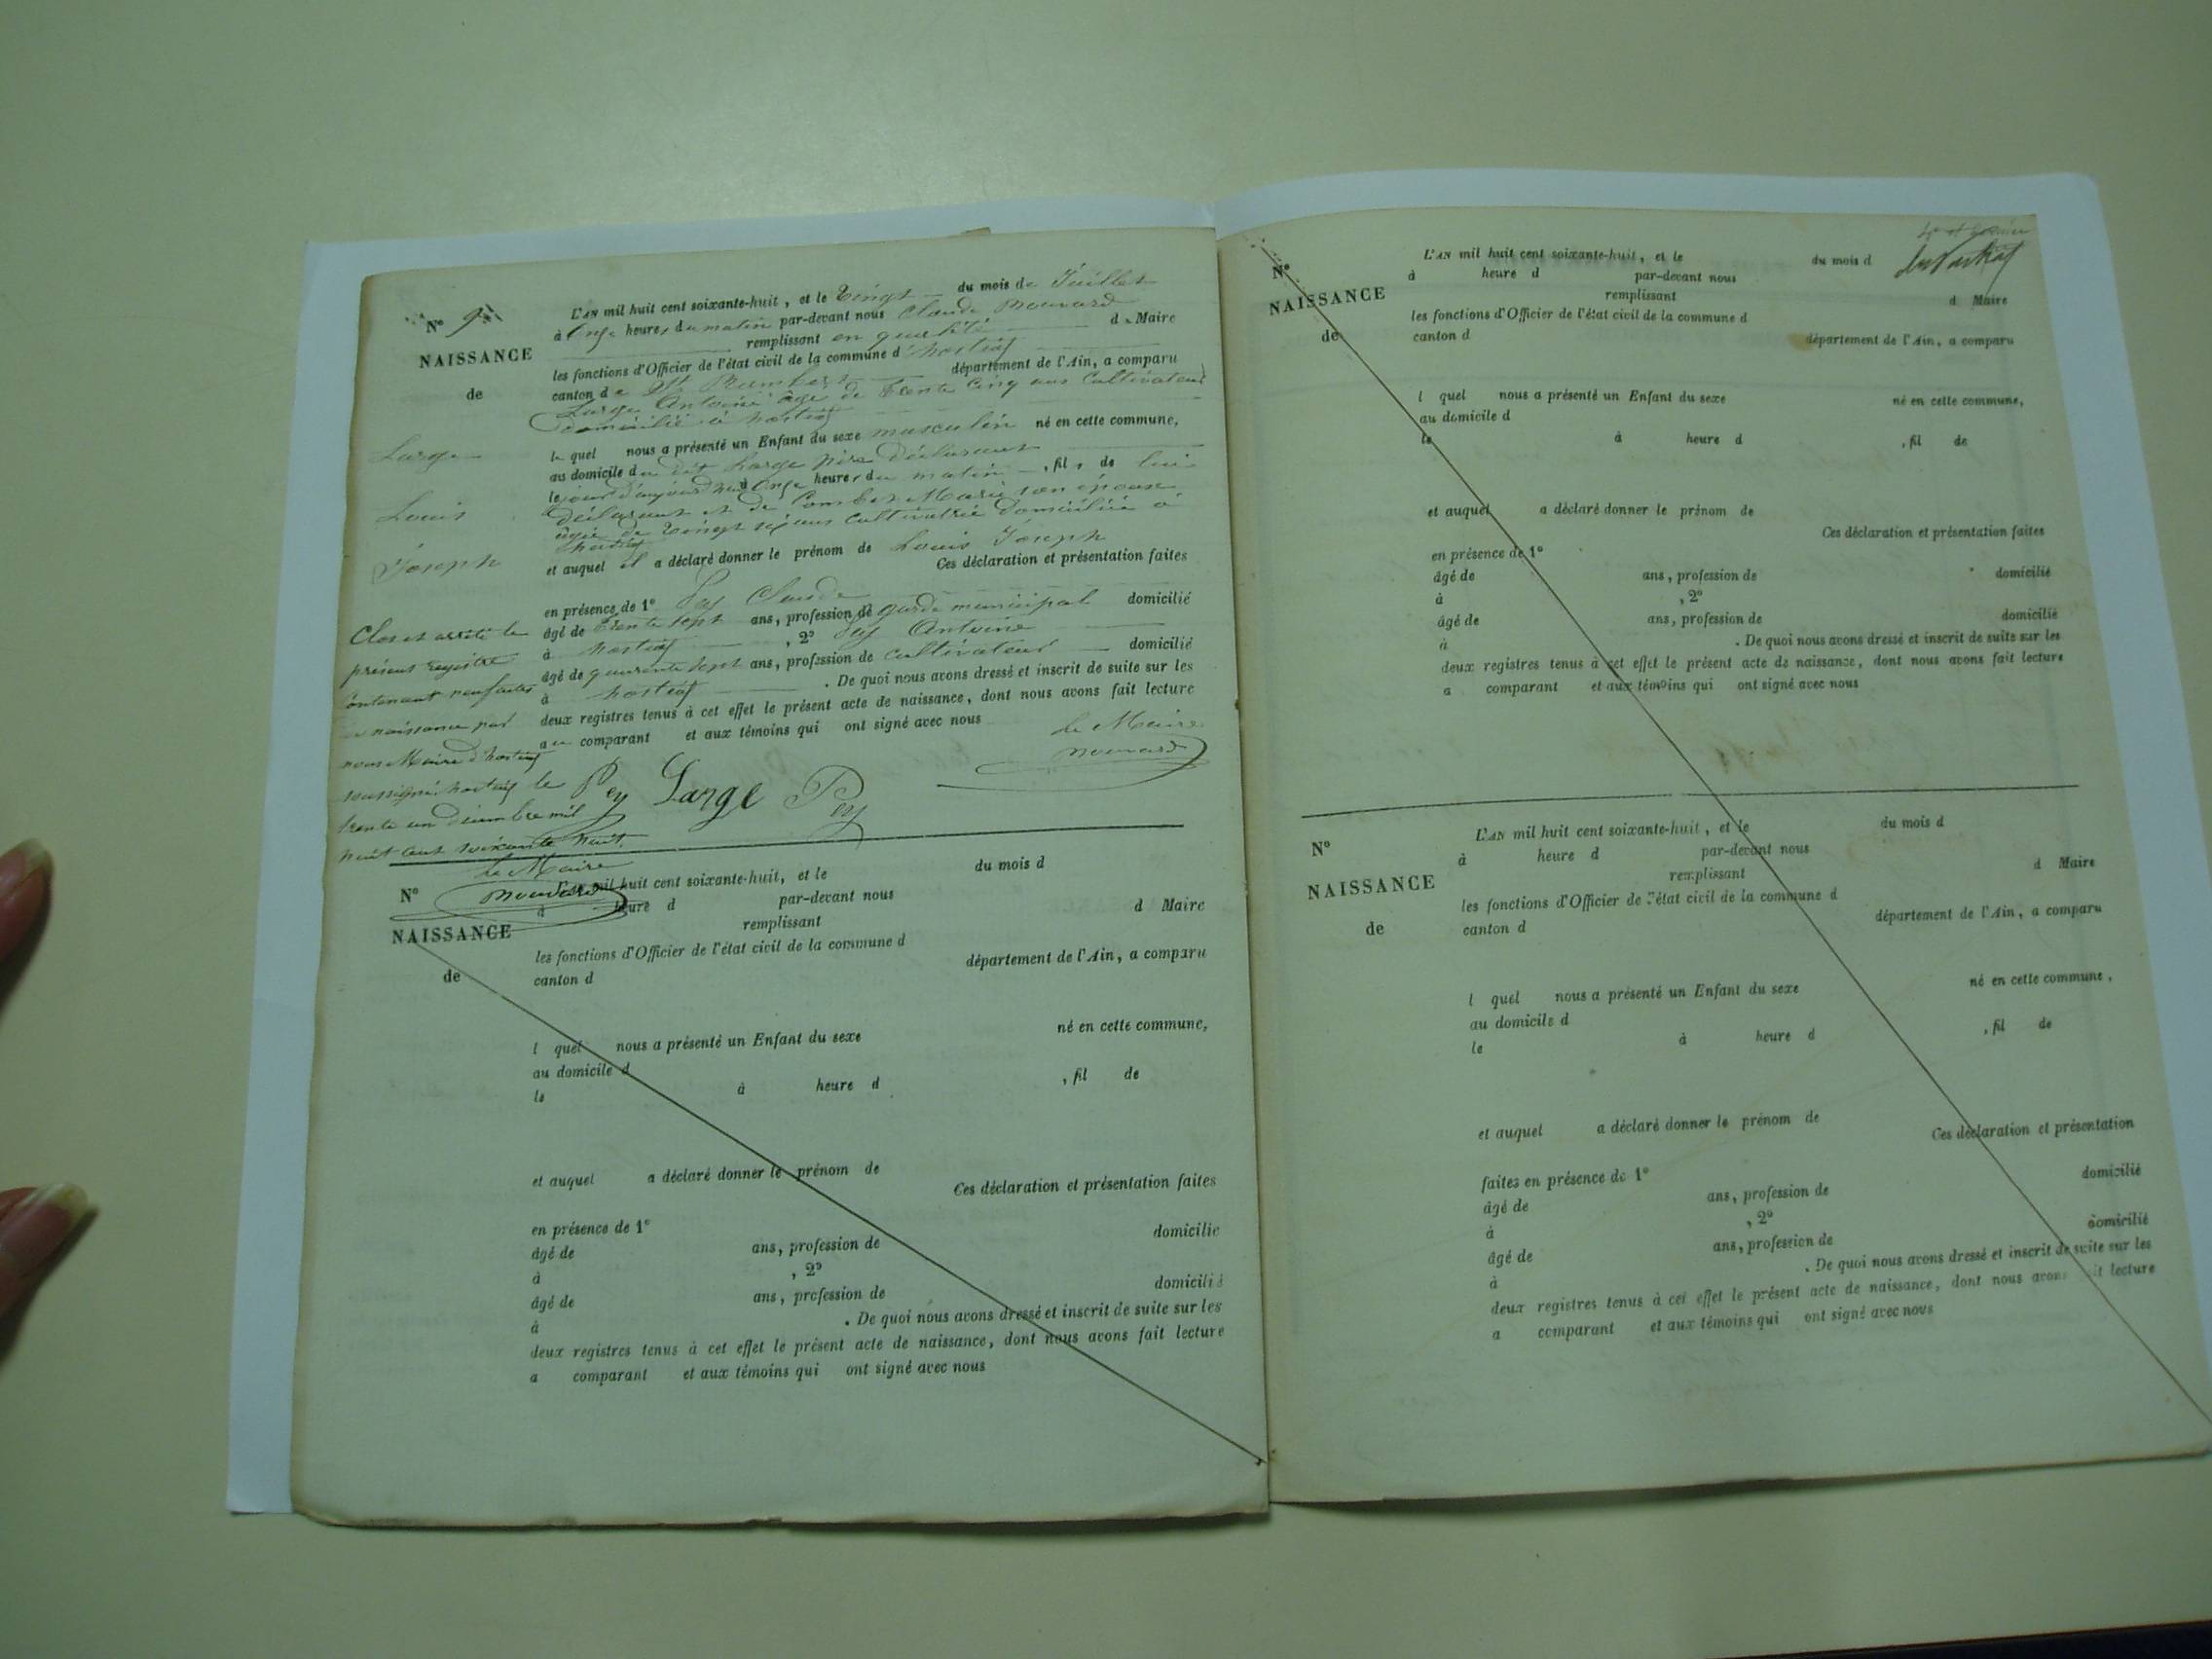 N° 9
NAISSANCE
de
Large
Louis
Joseph
L'AN mil huit cent soixante-huit, et le vingt du mois de Juillet
à onze heures du matin par-devant nous Claude
remplissant en qualité d Maire
les fonctions d'Officier de l'état civil de la commune d'hostiaz
canton de St Rambert département de l'Ain, a comparu
Large Antoine agé de trente cinq ans Cultivateur
domicilié à hostiaz
le quel nous a présenté un Enfant du sexe masculin né en cette commune,
au domicile du dit Large père déclarant
le jour d'aujourd'hui à onze heures du matin, fils de lui
déclarant et de Combet Marie son épouse
agée de vingt six ans cultivatrice domiciliée à
hostiaz
et auquel il a déclaré donner le prénom de Louis Joseph
Ces déclaration et présentation faites
en présence de 1° Pey Claude
âgé de trente sept ans, profession de garde municipal domicilié
à hostiaz, 2° Pey Antoine
âgé de quarente sept ans, profession de cultivateur domicilié
à hostiaz. De quoi nous avons dressé et inscrit de suite sur les
deux registres tenus à cet effet le présent acte de naissance, dont nous avons fait lecture
au comparant et aux témoins qui ont signé avec nous
le Maire
Pey Large Pey
Clos et arrêté le
présent registre
contenant neuf actes
de naissance par
nous Maire d'hostiaz
soussigné. hostiaz le
trente un décembre mil
huit cent soixante huit.
le Maire
N°
NAISSANCE
de
L'AN mil huit cent soixante-huit, et le du mois d
à heure d par-devant nous
remplissant d Maire
les fonctions d'Officier de l'état civil de la commune d
canton d département de l'Ain, a comparu
l quel nous a présenté un Enfant du sexe né en cette commune,
au domicile d
le à heure d , fil de
et auquel a déclaré donner le prénom de
Ces déclaration et présentation faites
en présence de 1°
âgé de ans, profession de domicilié
à , 2°
âgé de ans, profession de domicilié
à . De quoi nous avons dressé et inscrit de suite sur les
deux registres tenus à cet effet le présent acte de naissance, dont nous avons fait lecture
a comparant et aux témoins qui ont signé avec nous
N°
NAISSANCE
de
L'AN mil huit cent soixante-huit, et le du mois d
à heure d par-devant nous
remplissant d Maire
les fonctions d'Officier de l'état civil de la commune d
canton d département de l'Ain, a comparu
l quel nous a présenté un Enfant du sexe né en cette commune,
au domicile d
le à heure d , fil de
et auquel a déclaré donner le prénom de
Ces déclaration et présentation faites
en présence de 1°
âgé de ans, profession de domicilié
à , 2°
âgé de ans, profession de domicilié
à . De quoi nous avons dressé et inscrit de suite sur les
deux registres tenus à cet effet le présent acte de naissance, dont nous avons fait lecture
a comparant et aux témoins qui ont signé avec nous
N°
NAISSANCE
de
L'AN mil huit cent soixante-huit, et le du mois d
à heure d par-devant nous
remplissant d Maire
les fonctions d'Officier de l'état civil de la commune d
canton d département de l'Ain, a comparu
l quel nous a présenté un Enfant du sexe né en cette commune,
au domicile d
le à heure d , fil de
et auquel a déclaré donner le prénom de
Ces déclaration et présentation
faites en présence de 1°
âgé de ans, profession de domicilié
à , 2°
âgé de ans, profession de domicilié
à . De quoi nous avons dressé et inscrit de suite sur les
deux registres tenus à cet effet le présent acte de naissance, dont nous avons fait lecture
a comparant et aux témoins qui ont signé avec nous